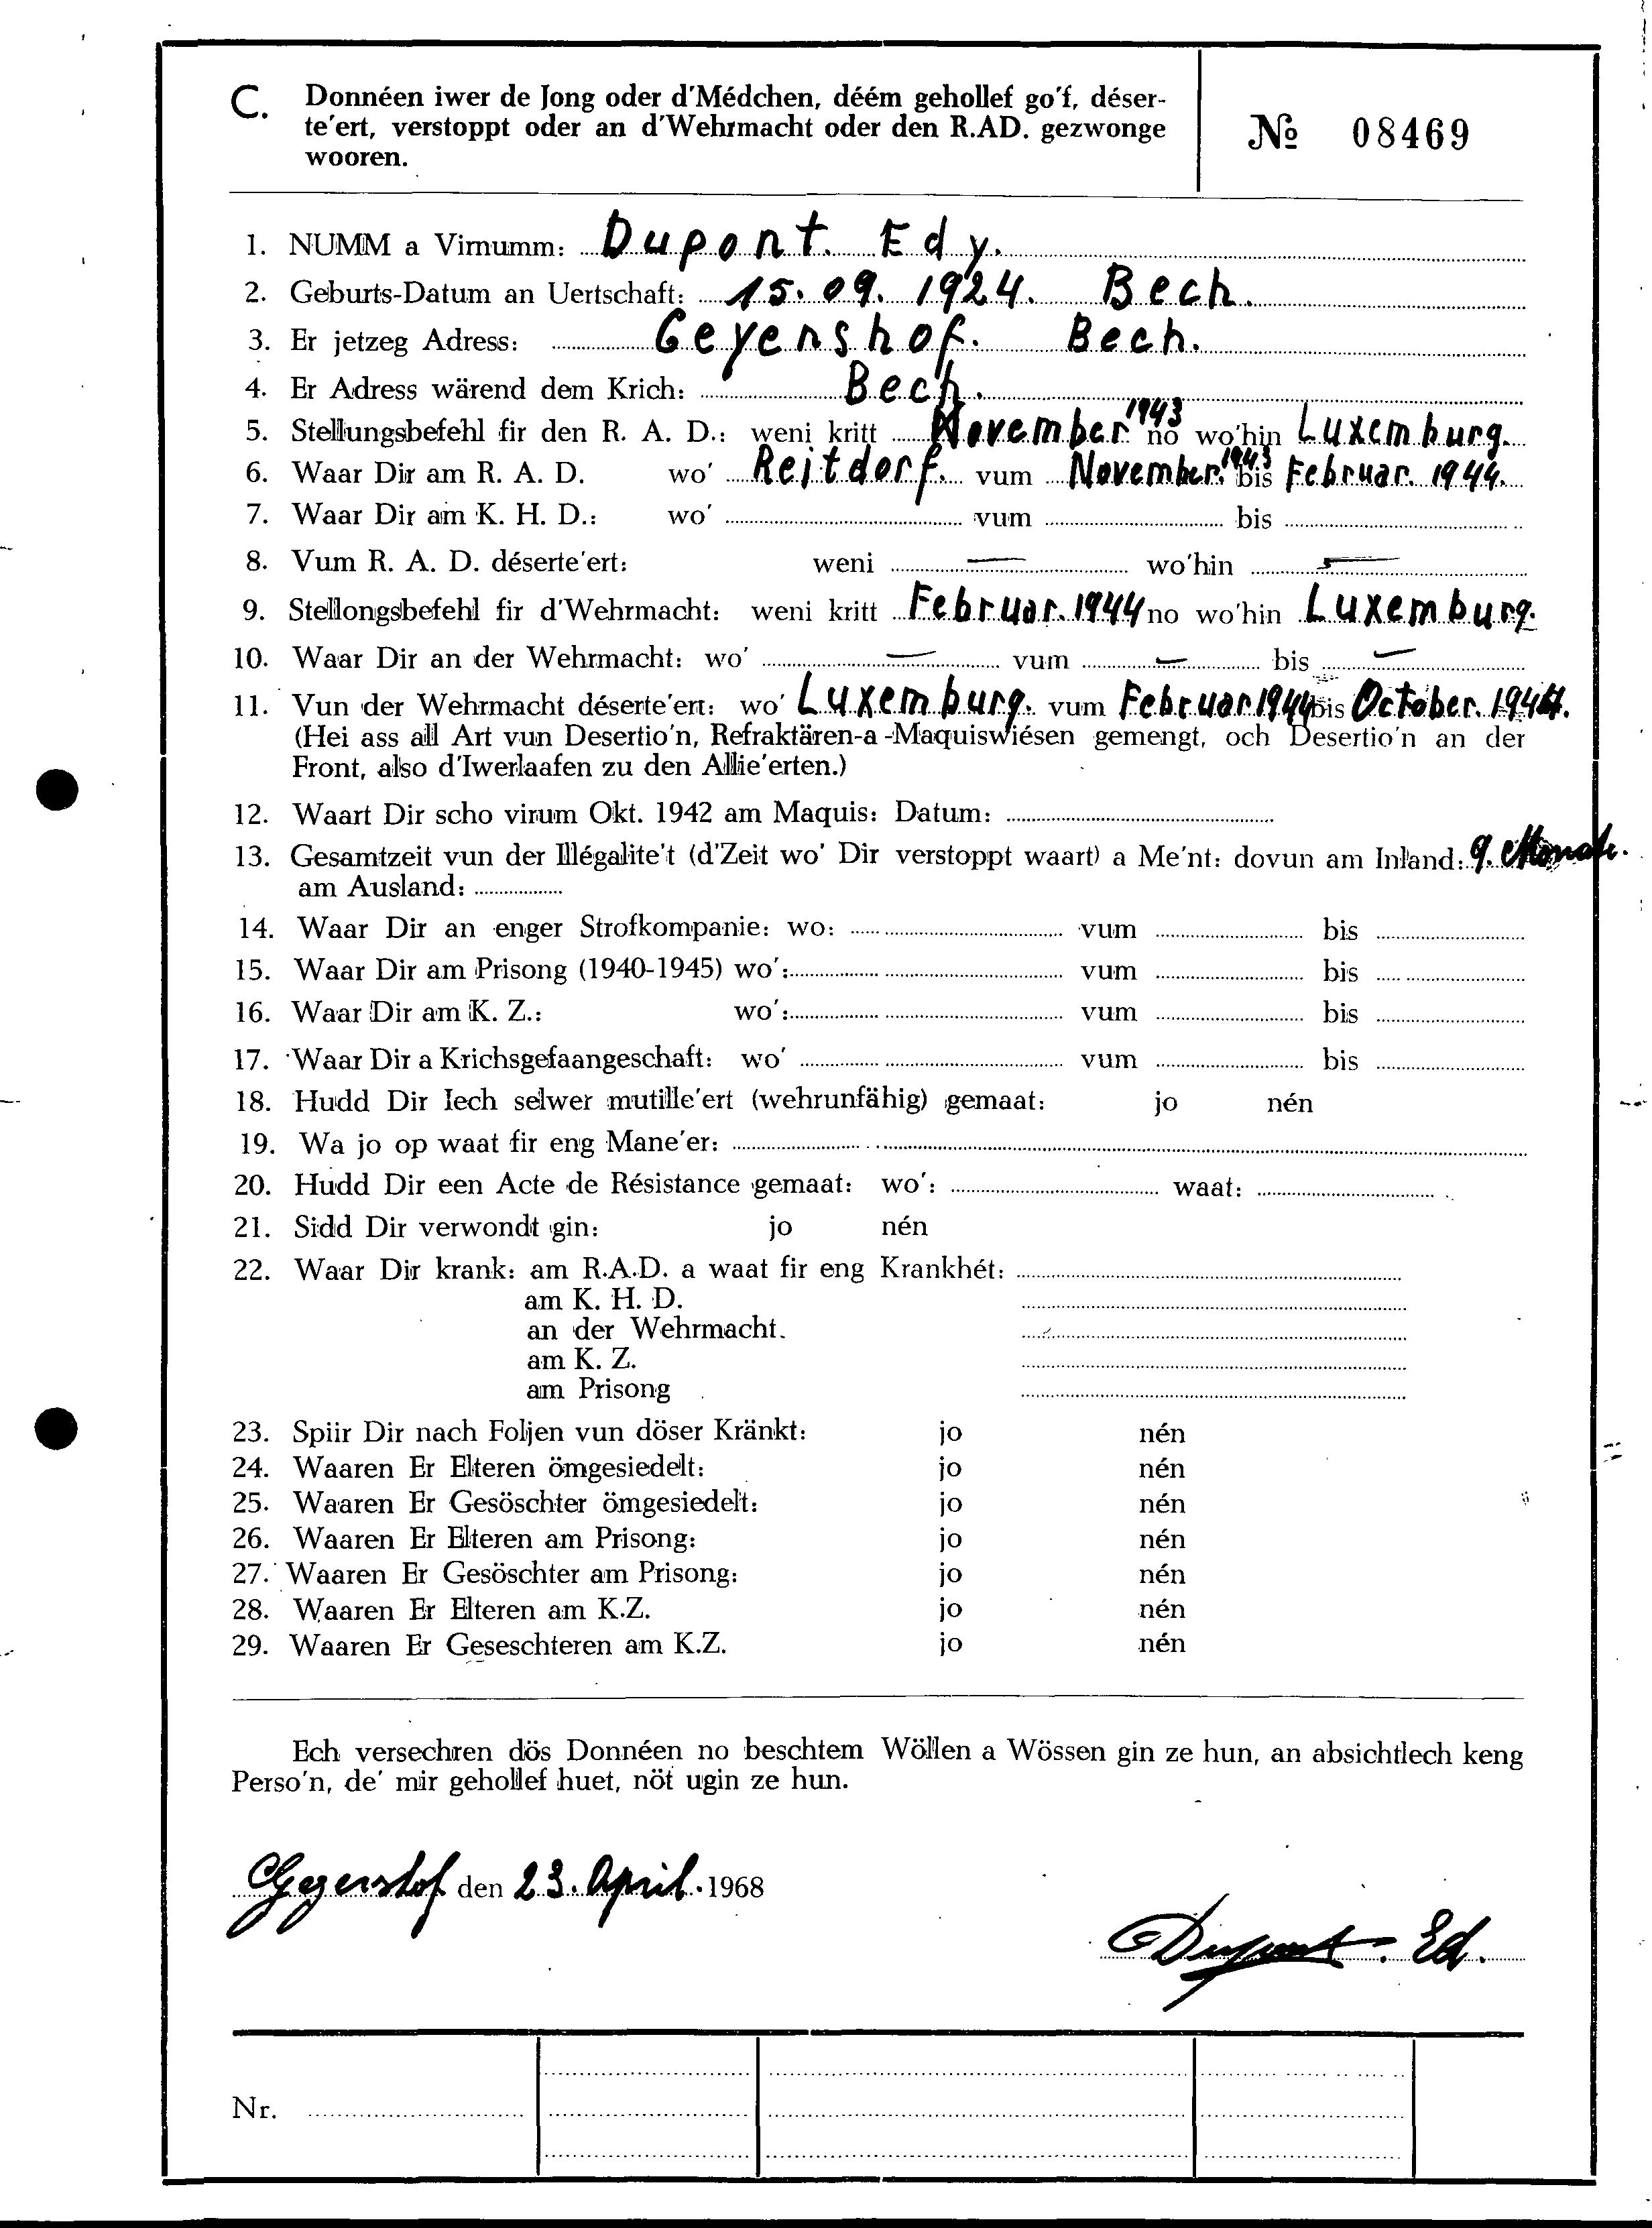 C. Donnéen iwer de Jong oder d'Médchen, déém gehollef go'f, déser-
te'ert, verstoppt oder an d'Wehrmacht oder den R.AD. gezwonge
wooren.
№ 08469
1. NUMM a Virnumm: Dupont. Edy.
2. Geburts-Datum an Uertschaft: 15. 09. 1924. Bech.
3. Er jetzeg Adress: Geyenshof. Bech.
4. Er Adress wärend dem Krich: Bech.
5. Stellungsbefehl fir den R. A. D.: weni kritt November 1943 no wo'hin Luxemburg.
6. Waar Dir am R. A. D. wo' Reitdorf. vum November. 1943 bis Februar. 1944.
7. Waar Dir am K. H. D.: wo' vum bis
8. Vum R. A. D. déserte'ert: weni — wo'hin —
9. Stellongsbefehl fir d'Wehrmacht: weni kritt Februar. 1944 no wo'hin Luxemburg.
10. Waar Dir an der Wehrmacht: wo' — vum — bis —
11. Vun der Wehrmacht déserte'ert: wo' Luxemburg. vum Februar 1944 bis October. 1944.
(Hei ass all Art vun Desertio'n, Refraktären-a-Maquiswiésen gemengt, och Desertio'n an der
Front, also d'Iwerlaafen zu den Allie'erten.)
12. Waart Dir scho virum Okt. 1942 am Maquis: Datum:
13. Gesamtzeit vun der Illégalite't (d'Zeit wo' Dir verstoppt waart) a Me'nt: dovun am Inland: 9. Monate.
am Ausland:
14. Waar Dir an enger Strofkompanie: wo: vum bis
15. Waar Dir am Prisong (1940-1945) wo': vum bis
16. Waar Dir am K. Z.: wo': vum bis
17. Waar Dir a Krichsgefaangeschaft: wo' vum bis
18. Hudd Dir Iech selwer mutille'ert (wehrunfähig) gemaat: jo nén
19. Wa jo op waat fir eng Mane'er:
20. Hudd Dir een Acte de Résistance gemaat: wo': waat:
21. Sidd Dir verwondt gin: jo nén
22. Waar Dir krank: am R.A.D. a waat fir eng Krankhét:
am K. H. D.
an der Wehrmacht.
am K. Z.
am Prisong
23. Spiir Dir nach Foljen vun döser Kränkt: jo nén
24. Waaren Er Elteren ömgesiedelt: jo nén
25. Waaren Er Gesöschter ömgesiedelt: jo nén
26. Waaren Er Elteren am Prisong: jo nén
27. Waaren Er Gesöschter am Prisong: jo nén
28. Waaren Er Elteren am K.Z. jo nén
29. Waaren Er Geseschteren am K.Z. jo nén
Ech versechren dös Donnéen no beschtem Wöllen a Wössen gin ze hun, an absichtlech keng
Perso'n, de' mir gehollef huet, nöt ugin ze hun.
Gegershof den 23. April. 1968
Dupont. Ed.
Nr.